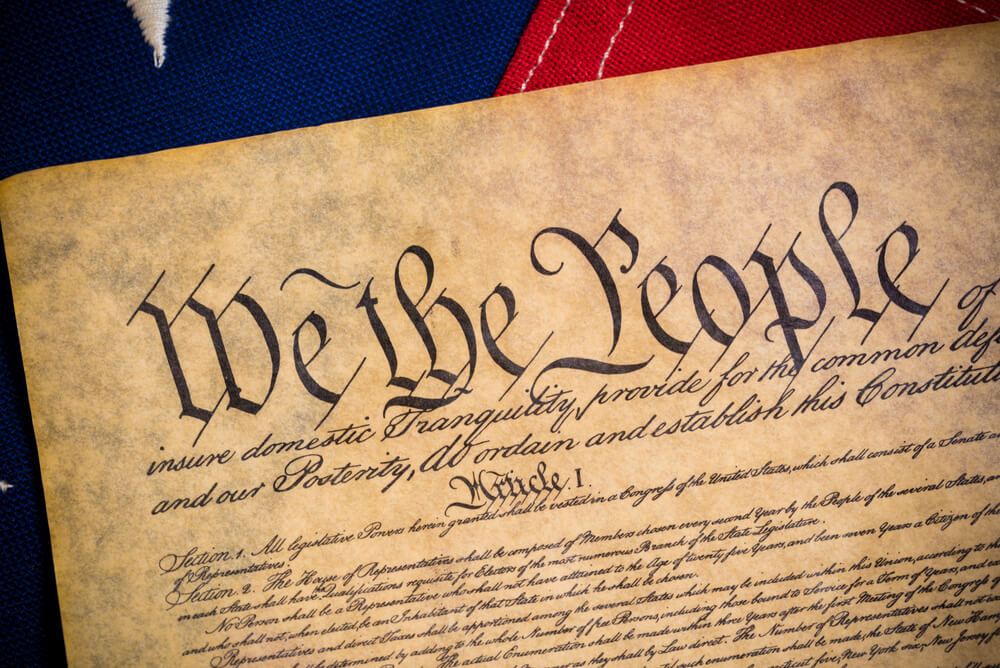 We the People of
insure domestic Tranquility, provide for the common def
and our Posterity, do ordain and establish this Constituti
Article. I.
Section. 1. All legislative Powers herein granted shall be vested in a Congress of the United States, which shall consist of a Senate a
of Representatives.
Section. 2. The House of Representatives shall be composed of Members chosen every second Year by the People of the several States, a
in each State shall have the Qualifications requisite for Electors of the most numerous Branch of the State Legislature.
No Person shall be a Representative who shall not have attained to the Age of twenty five Years, and been seven Years a Citizen of the
who shall not, when elected, be an Inhabitant of that State in which he shall be chosen.
Representatives and direct Taxes shall be apportioned among the several States which may be included within this Union, according to the
shall be determined by adding to the whole Number of free Persons, including those bound to Service for a Term of Years, and ex
The actual Enumeration shall be made within three Years after the first Meeting of the Congress of
as they shall by Law direct. The Number of Representatives shall not ex
such enumeration shall be made, the State of New Hamp
five, New York six, New Jersey fo